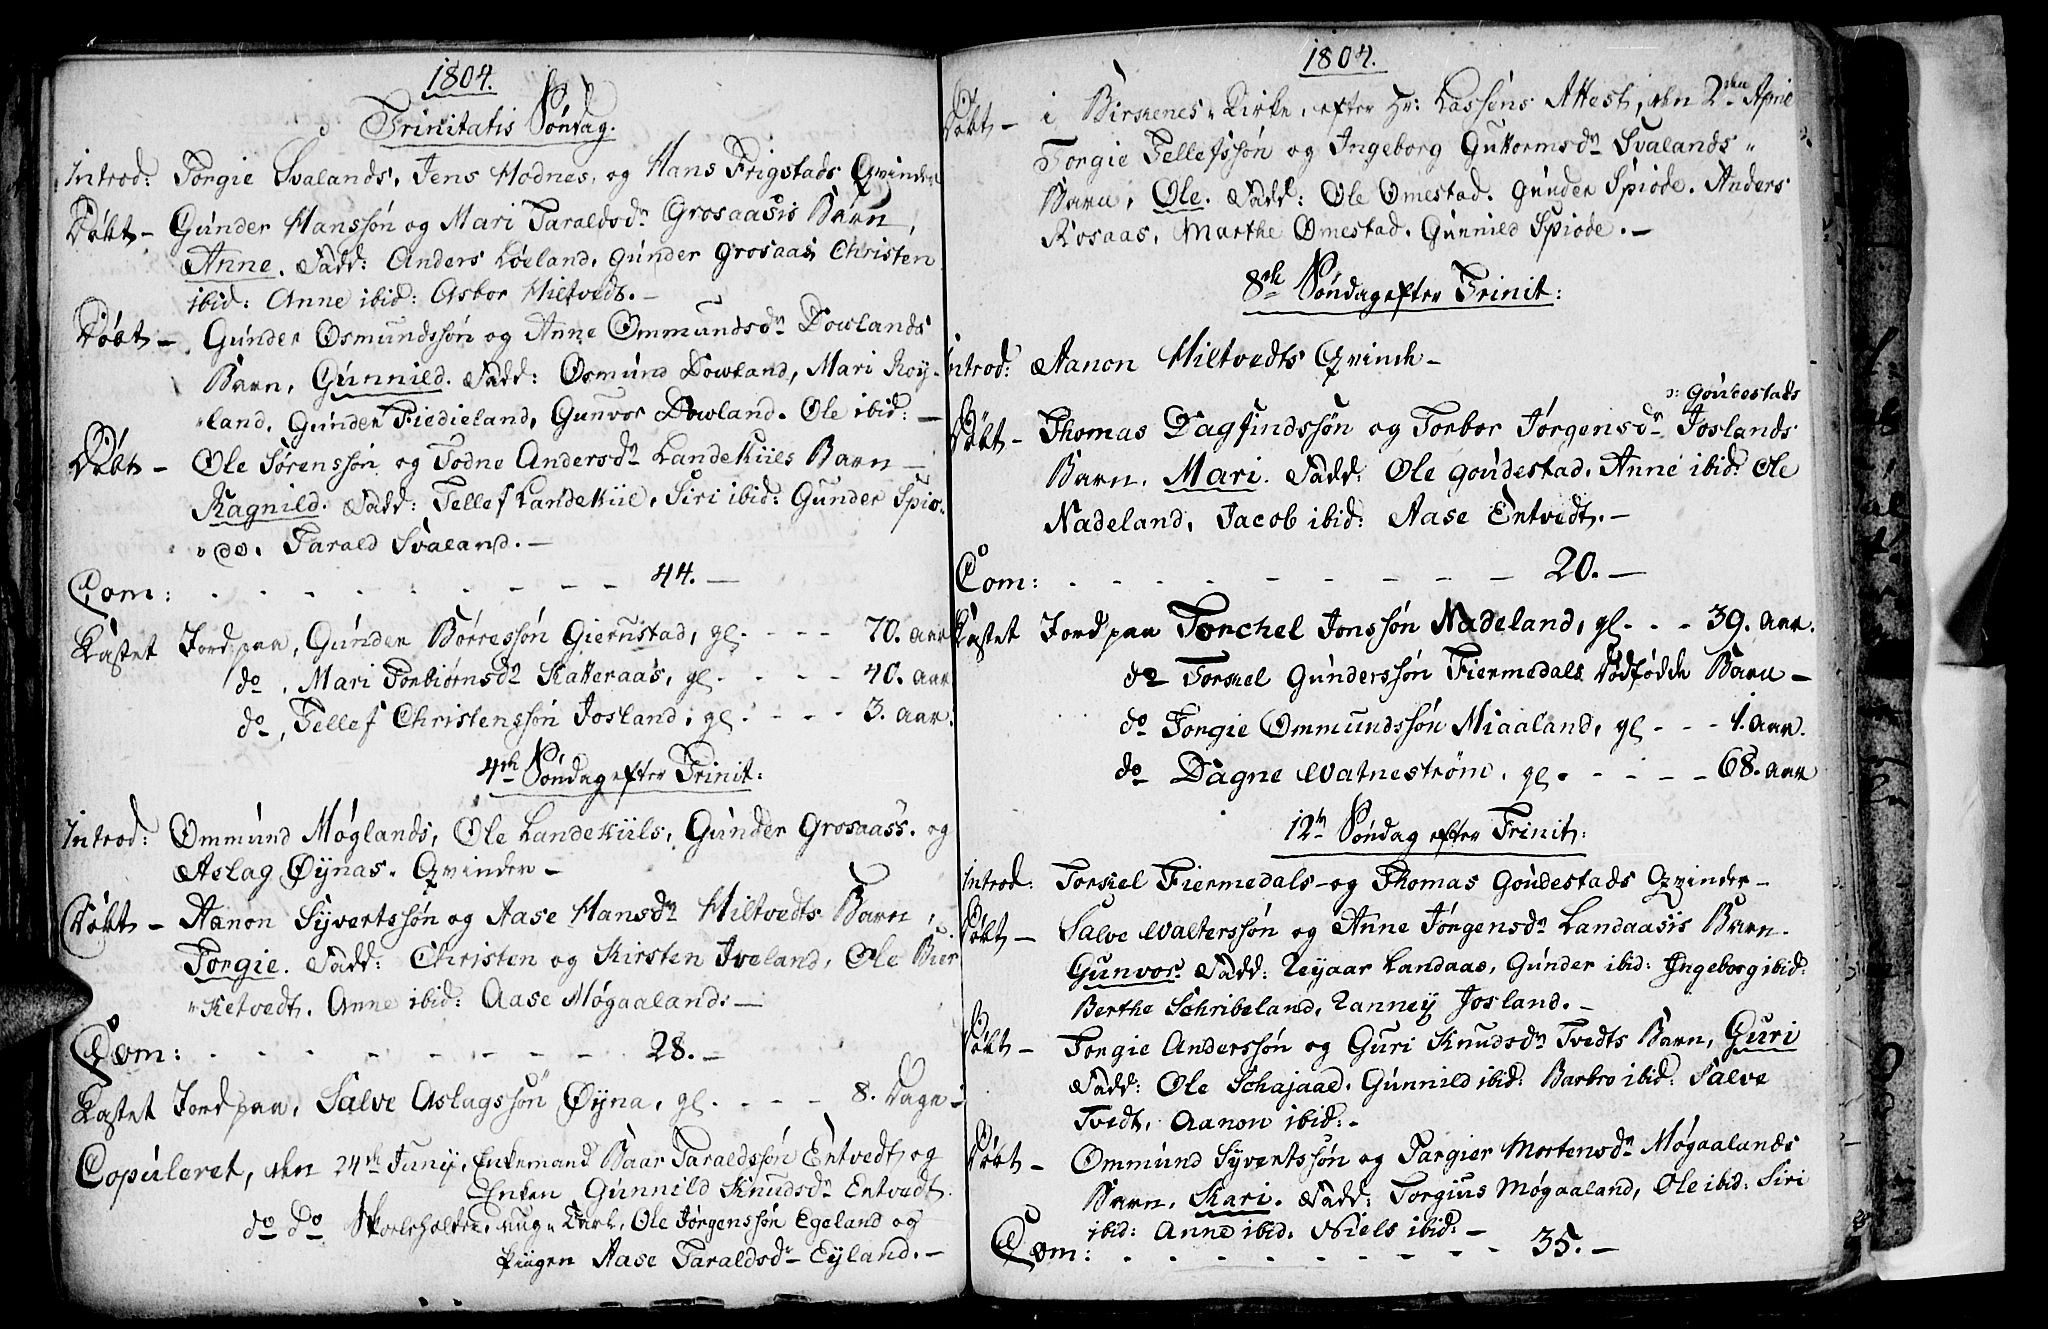 1804.
Trinitatis Søndag.
Introd: Torgie Svalands, Jens Hodnes, og Hans Frigstads Qvinder
Døbt – Gunder Hanssøn og Mari Taraldsdr Grosaasis Barn,
Anne. Fadd: Anders Løeland, Gunder Grosaas, Christen
ibid: Anne ibid: Asbor Hiltvedt. –
Døbt – Gunder Osmundssøn og Anne Ommundsdr Dowlands
Barn, Gunnild. Fadd: Osmund Dowland, Mari Røy-
land, Gunder Fiedieland, Gunvor Dowland. Ole ibid: –
Døbt – Ole Sørenssøn og Todne Andersdr Landekiils Barn –
Ragnild. Fadd: Tellef Landekiil, Siri ibid: Gunder Spio-
de. Tarald Svaland. –
Com: - - - - - - - 44. –
Kastet Jord paa, Gunder Børressøn Giernstad, gl. - - - 70. aar
do, Mari Torbiørnsdr Katteraas, gl. - - - 40. aar
do, Tellef Christenssøn Josland, gl. - - - 3. aar.
4de Søndag efter Trinit:
Introd: Ommund Møglands, Ole Landekiils, Gunder Grosaass. og
Aslag Øynas. Qvinder –
Døbt – Aanon Syvertssøn og Aase Hansdr Hiltvedts Barn,
Torgie. Fadd: Christen og Kirsten Iveland, Ole Bier
ketvedt. Anne ibid: Aase Møgaaland. –
Com: - - - - - - - 28. –
Kastet Jord paa, Salve Aslagssøn Øyna, gl. - - - 8. Dage –
Copuleret, den 24de Junij, Enkemand Baar Taraldssøn Entvedt og
Enken Gunnild Knudsdr Entvedt.
do do Skoleholder, ung Karl, Ole Jørgenssøn Egeland og
Piigen Aase Taraldsdr Eyland. –
1804.
Døbt – i Birkenes Kirke, efter Hr: Lassens Attest, den 2den April
Torgie Tellefssøn og Ingeborg Guttormsdr Svalands
Barn, Ole. Fadd: Ole Omestad. Gunder Spiode. Anders
Rosaas, Marthe Omestad. Gunnild Spiode. –
8de Søndag efter Trinit:
Introd: Aanon Hiltvedts Qvinde –
ↄ: Goudestads
Døbt – Thomas Dagfindssøn og Torbor Jørgensdr Joslands
Barn. Mari. Fadd: Ole Goudestad. Anne ibid: Ole
Nadeland, Jacob ibid: Aase Entvedt. –
Com: - - - - - - - 20. –
Kastet Jord paa Torchel Jonssøn Nadeland, gl. - - 39. aar.
do Torkel Gunderssøn Fiermedals dødfødde Barn –
do Torgie Ommundssøn Miaaland, gl. - - - 1. aar.
do Dagne Watnestrøm, gl. - - - - 68. aar
12te Søndag efter Trinit:
Introd: Torkel Fiermedals – og Thomas Goudestads Qvinder –
Døbt – Salve Walterssøn og Anne Jørgensdr Landaasis Barn.
Gunvor. Fadd: Reyaar Landaas, Gunder ibid: Ingeborg ibid:
Berthe Schribeland, Ranney Josland. –
Døbt – Torgie Anderssøn og Guri Knudsdr Tvedts Barn, Guri
Fadd: Ole Schajaad. Gunnild ibid: Barbro ibid: Salve
Tvedt, Aanon ibid: –
Døbt – Ommund Syvertssøn og Targier Mortensdr Møgaalands
Barn, Kari. Fadd: Torgius Møgaaland, Ole ibid: Siri
ibid: Anne ibid. Niels ibid: –
Com: - - - - - - - 35. –